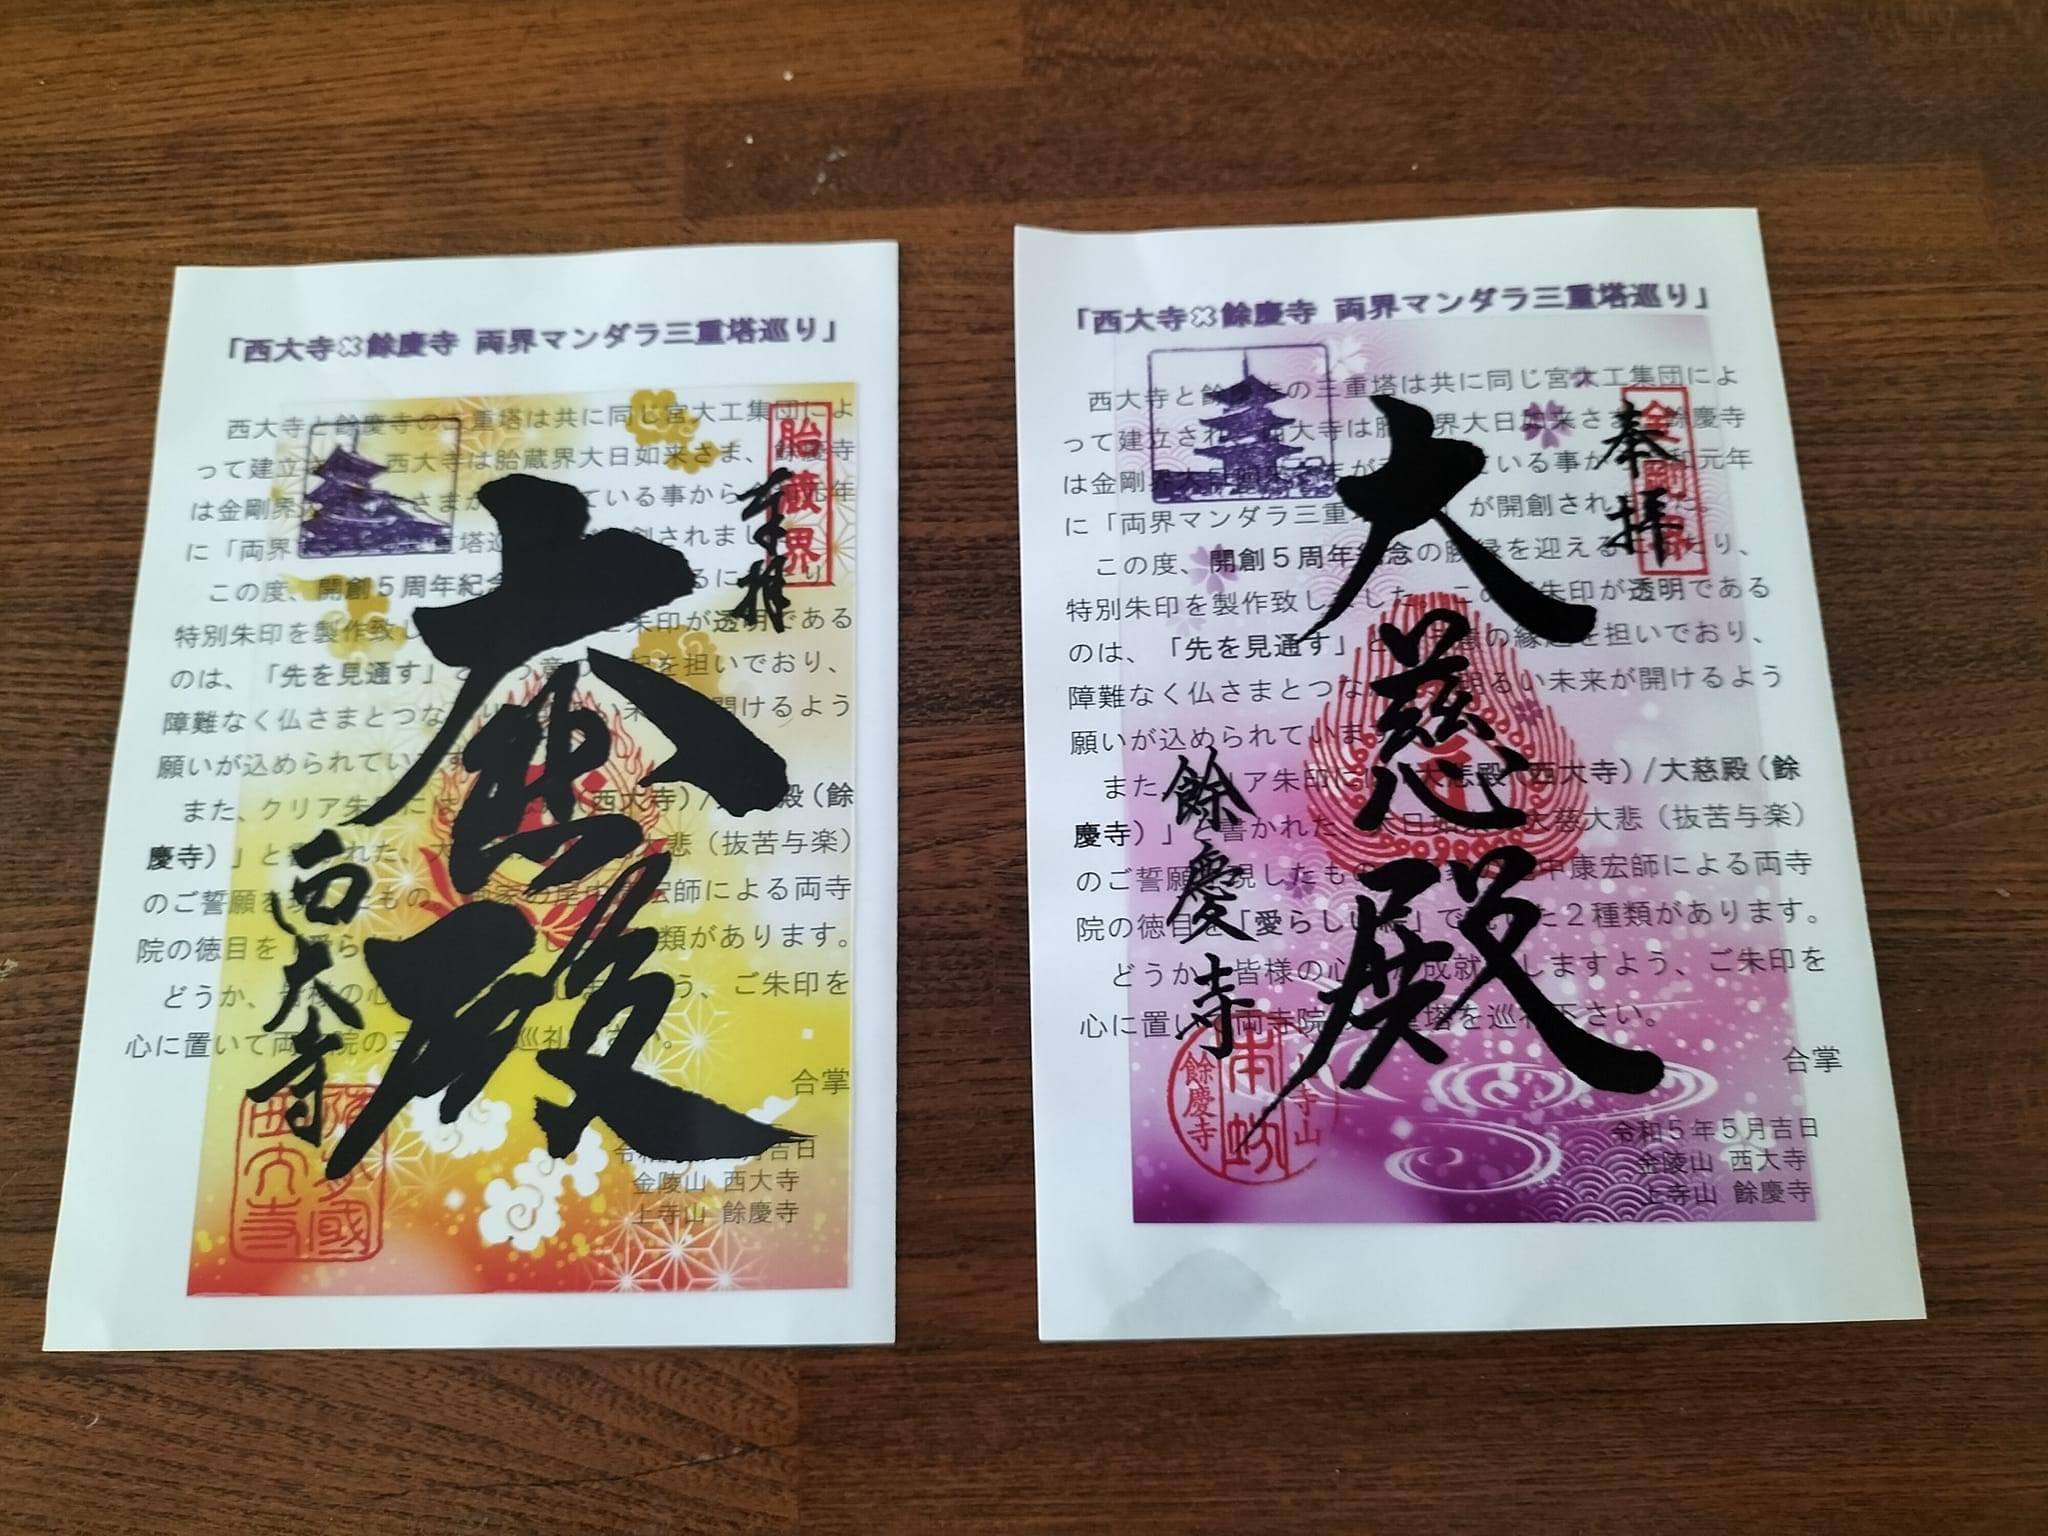 「西大寺✖餘慶寺 両界マンダラ三重塔巡り」
西大寺と餘慶寺の三重塔は共に同じ宮大工集団によ
って建立さ 西大寺は胎蔵界大日如来さま、餘慶寺
は金剛界 さまが ている事から 元年
に「両界 重塔 創されまし
この度、開創5周年紀念 るに り、
特別朱印を製作致し 朱印が透明である
のは、「先を見通す」 を担いでおり、
障難なく仏さまとつな 開けるよう
願いが込められてい
また、クリア朱 (西大寺)/ 殿(餘
慶寺)」と書かれた、 悲(抜苦与楽)
のご誓願を現したもの 宏師による両寺
院の徳目を「愛ら 類があります。
どうか、皆様の心 う、ご朱印を
心に置いて両 院の三 巡礼 さい。
合掌
月吉日
金陵山 西大寺
上寺山 餘慶寺
胎蔵界
奉拝
大悲殿
西大寺
「西大寺✖餘慶寺 両界マンダラ三重塔巡り」
西大寺と餘慶寺の三重塔は共に同じ宮大工集団によ
って建立され 西大寺は胎 界大日如来さま 餘慶寺
は金剛界大日如来さまが ている事か 和元年
に「両界マンダラ三重 」が開創され た。
この度、開創5周年紀念の勝縁を迎えるにあたり、
特別朱印を製作致しました。この 朱印が透明である
のは、「先を見通す」と 意の縁起を担いでおり、
障難なく仏さまとつな 明るい未来が開けるよう
願いが込められています
また、クリア朱印には 大悲殿(西大寺)/大慈殿(餘
慶寺)」と書かれた、大日如来 大慈大悲(抜苦与楽)
のご誓願 現したもの 家の尾中康宏師による両寺
院の徳目を「愛らしい絵」で た2種類があります。
どうか、皆様の心 成就 しますよう、ご朱印を
心に置いて両寺院 塔を巡礼下さい。
合掌
令和5年5月吉日
金陵山 西大寺
上寺山 餘慶寺
金剛界
奉拝
大慈殿
餘慶寺
餘慶寺
本坊
上寺山